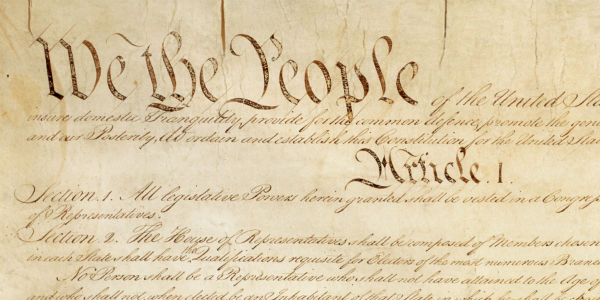 We the People of the United Sta
insure domestic Tranquility, provide for the common defence, promote the gene
and our Posterity, do ordain and establish this Constitution for the United Stat
Article. I.
Section. 1. All legislative Powers herein granted shall be vested in a Congre
of Representatives.
Section. 2. The House of Representatives shall be composed of Members chosen
in each State shall have the Qualifications requisite for Electors of the most numerous Branch
No Person shall be a Representative who shall not have attained to the Age of
and who shall not, when elected, be an Inhabitant of that State in which he shall be